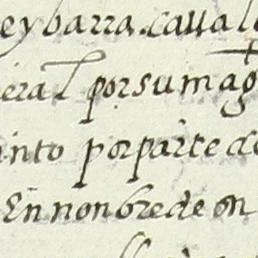 eybarra. cauall
eral por su mag
into por parte de
En nonbre de on